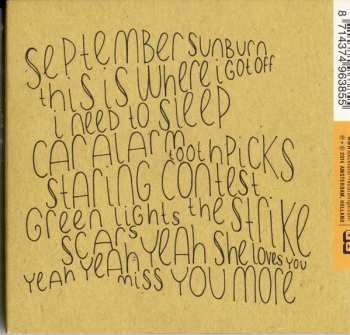 September Sunburn
this is where i got off
i need to sleep
car alarm toothpicks
staring contest
Green Lights the strike
scars yeah she loves you
yeah yeah miss you more
8 714374 963855
℗ + © 2014 AMSTERDAM, HOLLAND